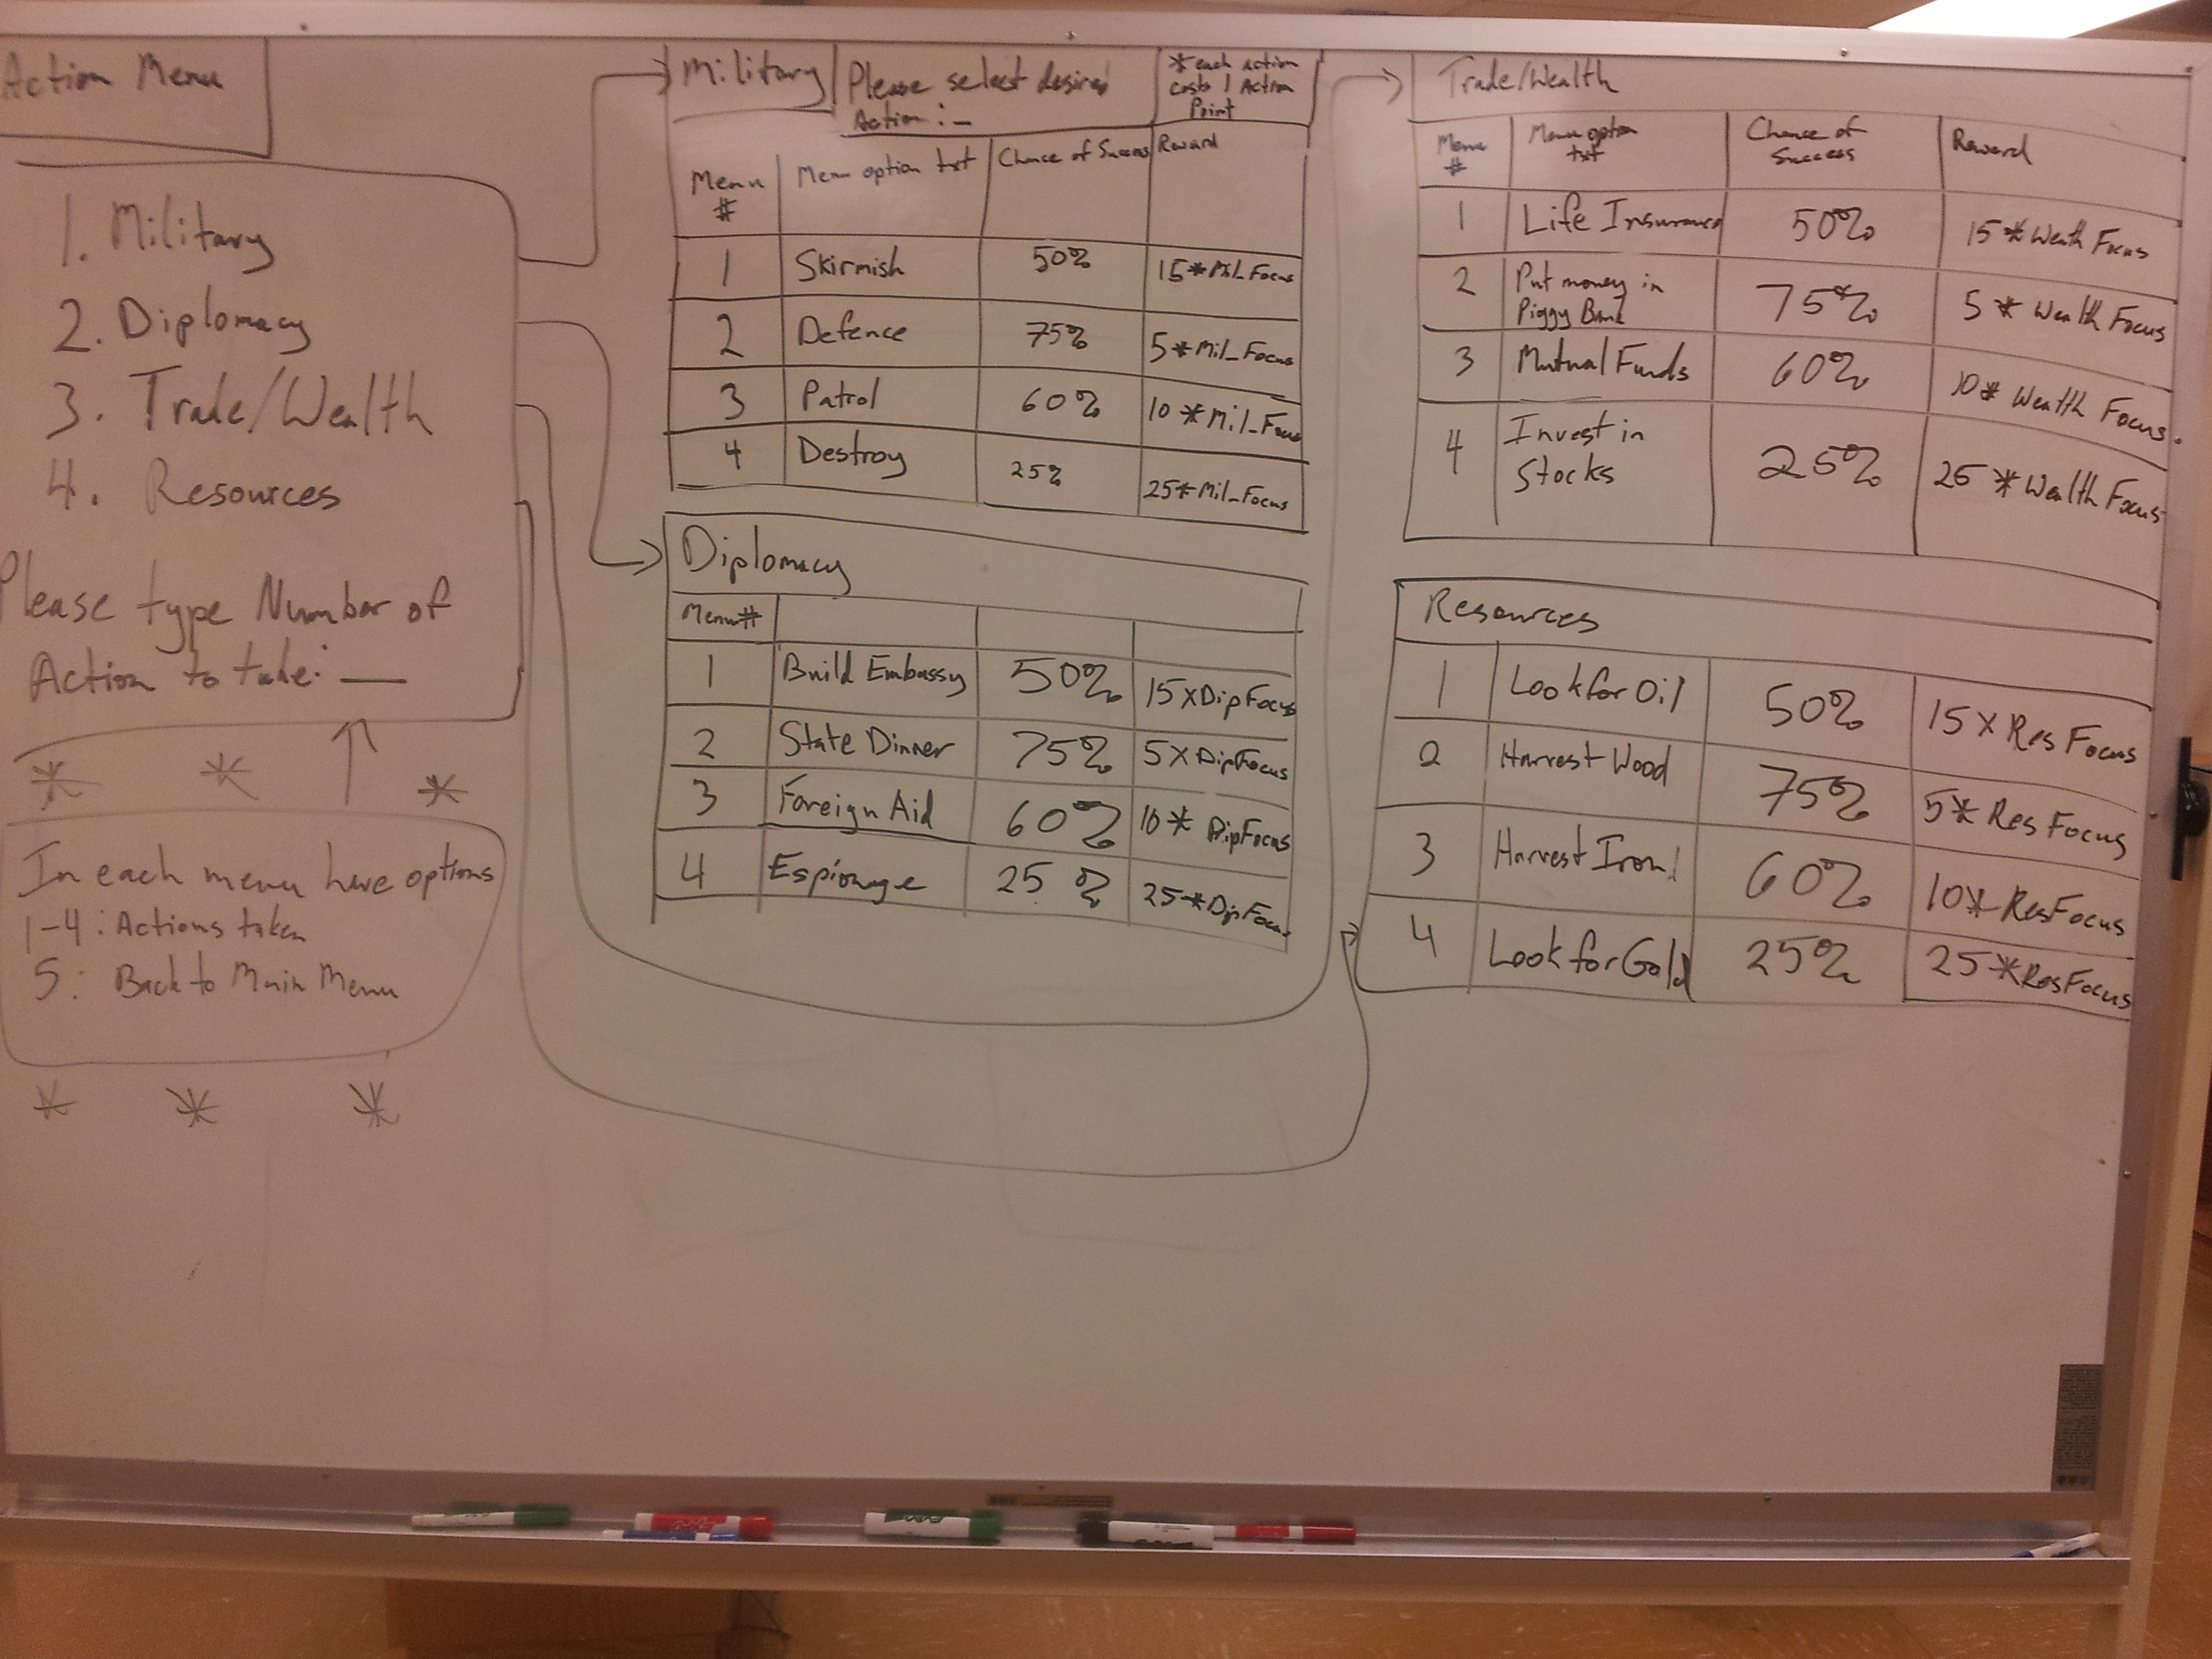 Action Menu
1. Military
2. Diplomacy
3. Trade/Wealth
4. Resources
Please type Number of
Action to take: __
* * *
In each menu have options
1-4: Actions taken
5: Back to Main Menu
* * *
Military
Please select desired
Action: _
*each action
costs 1 Action
Point
Menu # Menu option txt Chance of Success Reward
1 Skirmish 50% 15*Mil_Focus
2 Defence 75% 5*Mil_Focus
3 Patrol 60% 10*Mil_Focus
4 Destroy 25% 25*Mil_Focus
Diplomacy
Menu#
1 Build Embassy 50% 15xDipFocus
2 State Dinner 75% 5xDipFocus
3 Foreign Aid 60% 10* DipFocus
4 Espionage 25% 25*DipFocus
Trade/Wealth
Menu # Menu option txt Chance of Success Reward
1 Life Insurance 50% 15*Wealth Focus
2 Put money in Piggy Bank 75% 5* Wealth Focus
3 Mutual Funds 60% 10* Wealth Focus.
4 Invest in Stocks 25% 25 *Wealth Focus
Resources
1 Look for Oil 50% 15 x Res Focus
2 Harvest Wood 75% 5* Res Focus
3 Harvest Iron 60% 10* ResFocus
4 Look for Gold 25% 25*ResFocus